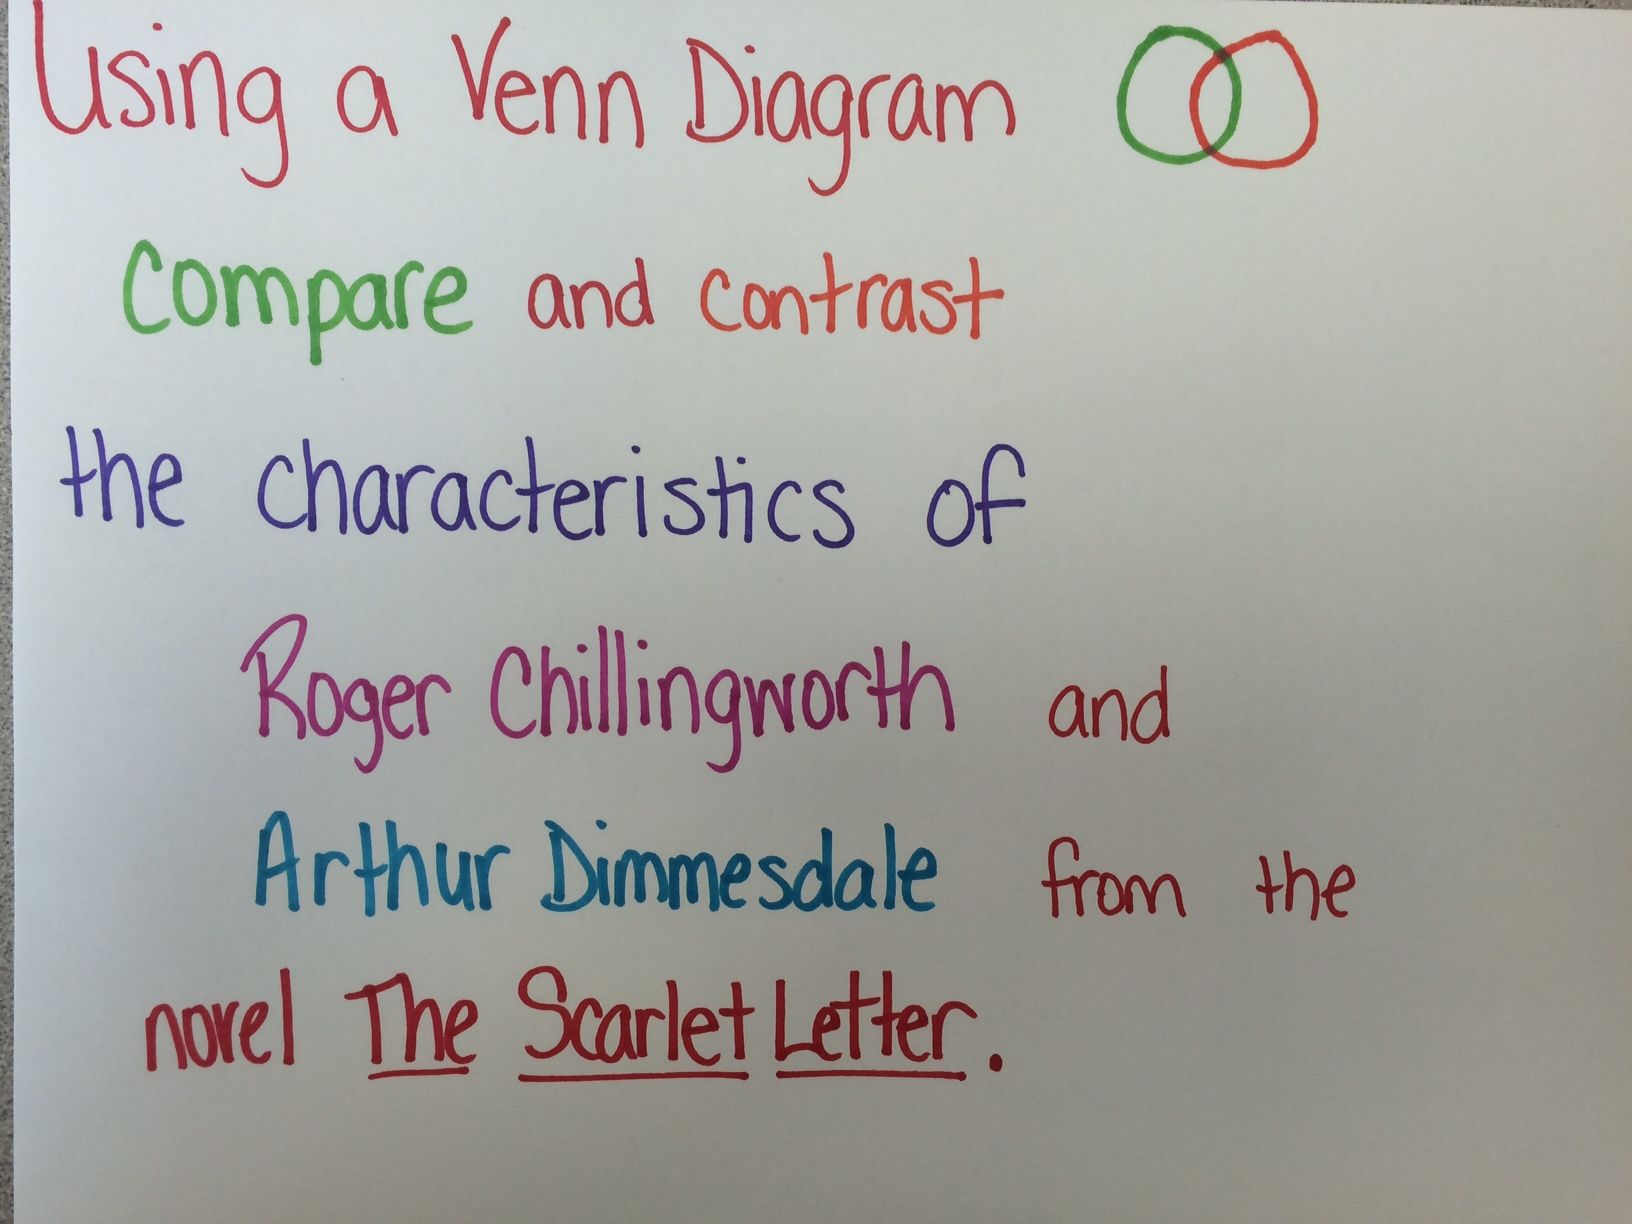 Using a Venn Diagram
Compare and contrast
the characteristics of
Roger Chillingworth and
Arthur Dimmesdale from the
novel The Scarlet Letter.